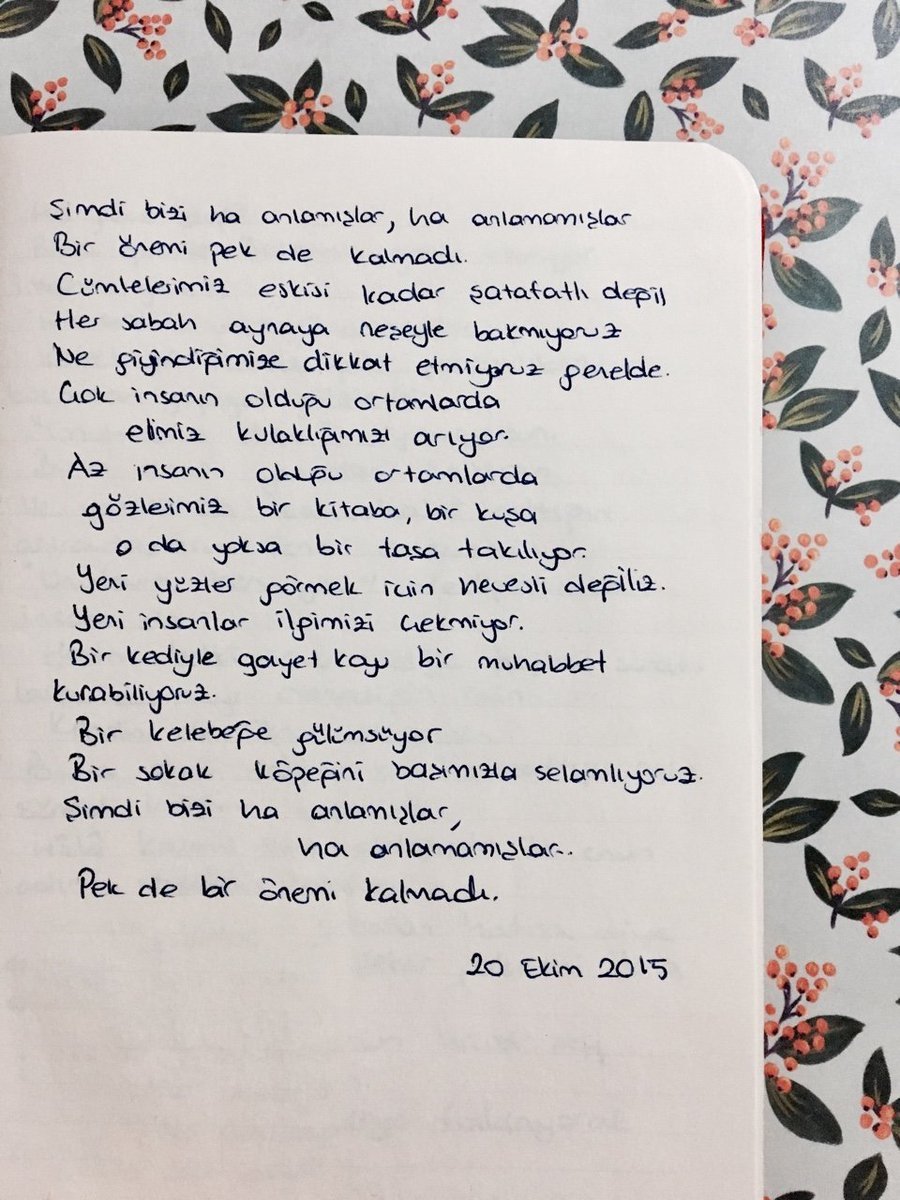 Şimdi bizi ha anlamışlar, ha anlamamışlar
Bir önemi pek de kalmadı.
Cümlelerimiz eskisi kadar şatafatlı değil
Her sabah aynaya neşeyle bakmıyoruz
Ne giyindiğimize dikkat etmiyoruz genelde.
Çok insanın olduğu ortamlarda
elimiz kulaklığımızı arıyor.
Az insanın olduğu ortamlarda
gözlerimiz bir kitaba, bir kuşa
o da yoksa bir taşa takılıyor.
Yeni yüzler görmek için hevesli değiliz.
Yeni insanlar ilgimizi çekmiyor.
Bir kediyle gayet koyu bir muhabbet
kurabiliyoruz.
Bir kelebeğe gülümsüyor
Bir sokak köpeğini başımızla selamlıyoruz.
Şimdi bizi ha anlamışlar,
ha anlamamışlar.
Pek de bir önemi kalmadı.
20 Ekim 2015